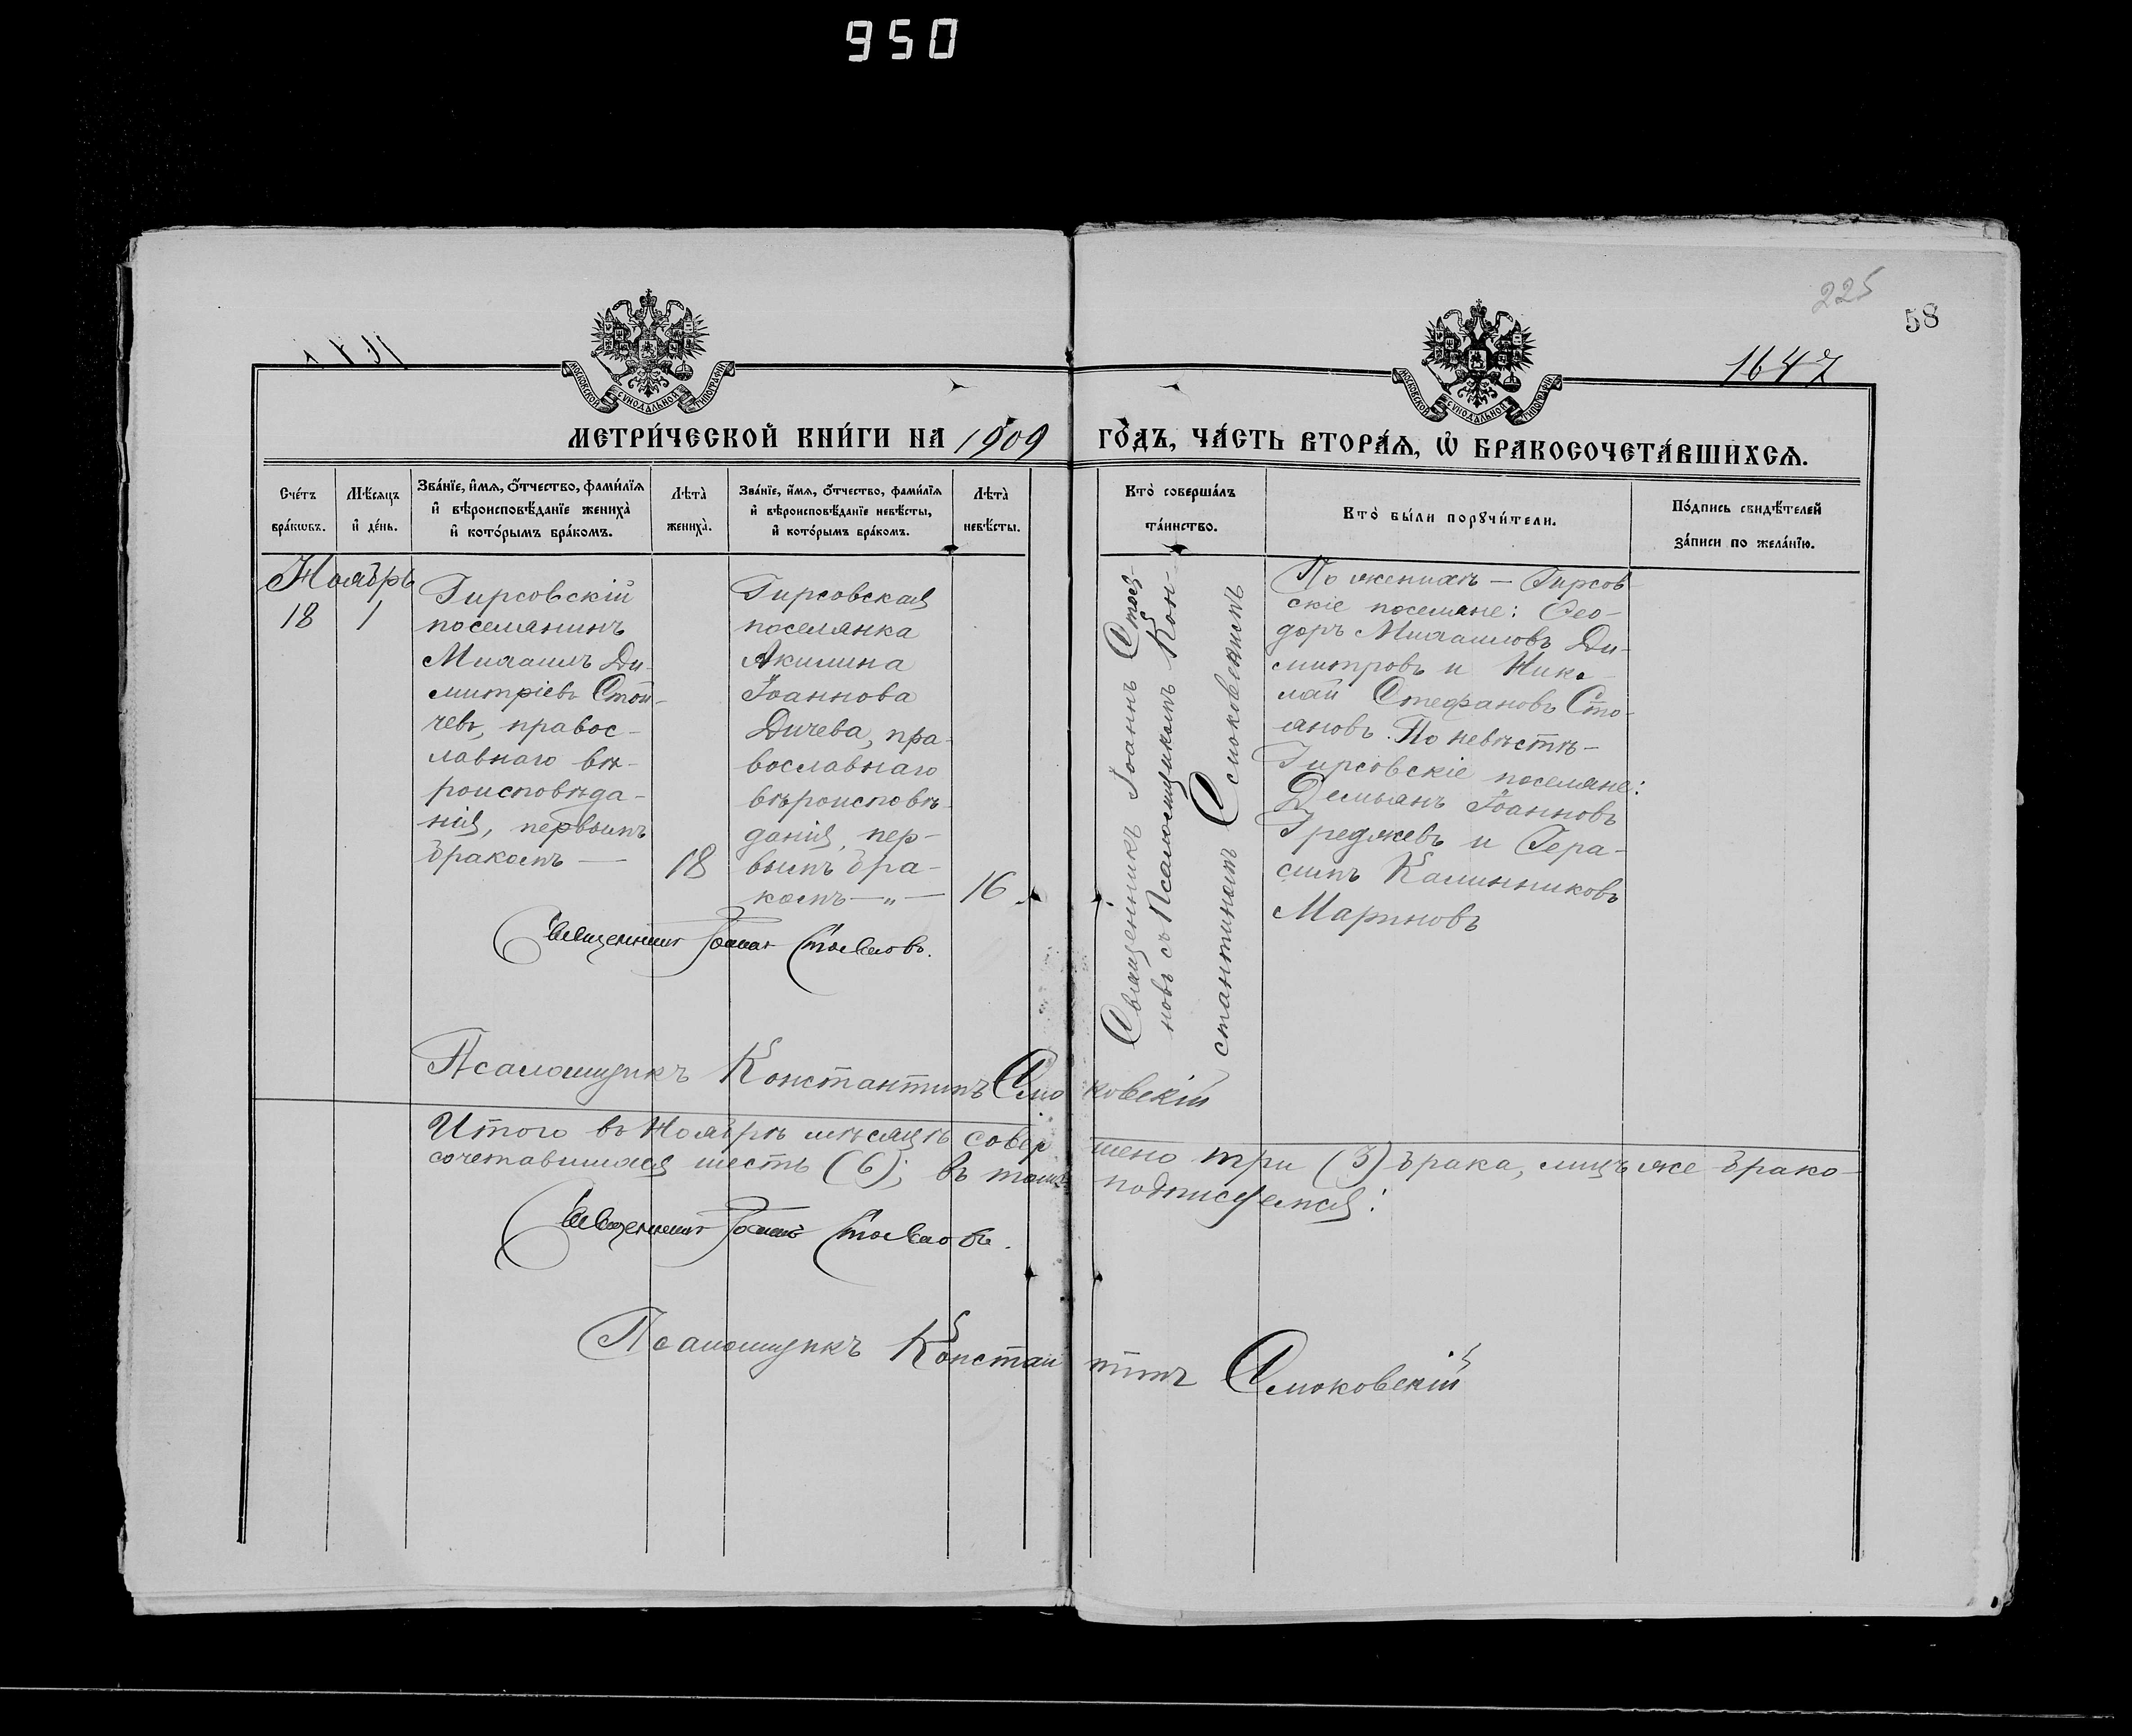 950
225
58
1647
МОСКОВСКОЙ СУНОДАЛЬНОЙ ТИПОГРАФІИ
МОСКОВСКОЙ СУНОДАЛЬНОЙ ТИПОГРАФІИ
МЕТРИ́ЧЕСКОЙ КНИ́ГИ НА 1909 ГО́ДЪ, ЧА́СТЬ ВТОРА́Ѧ, Ѡ҆ БРАКОСОЧЕТА́ВШИХСѦ.
Сче́тъ бра́кѡвъ.
Мѣ́сяцъ и҆ де́нь.
Зва́нїе, и҆́мѧ, ѻ҆́тчество, фами́лїѧ и҆ вѣроисповѣ́данїе жениха̀ и҆ кото́рымъ бра́комъ.
Лѣта̀ жениха̀.
Зва́нїе, и҆́мѧ, ѻ҆́тчество, фами́лїѧ и҆ вѣроисповѣ́данїе невѣ́сты, и҆ кото́рымъ бра́комъ.
Лѣта̀ невѣ́сты.
Кто̀ соверша́лъ та́инство.
Кто̀ бы́ли порꙋчи́тели.
По́дпись свидѣ́телей за́писи по жела́нїю.
Ноябрь
18
1
Гирсовскій
поселянинъ
Михаилъ Ди-
митріевъ Стой-
чевъ, правос-
лавнаго вѣ-
роисповѣда-
нія, первымъ
бракомъ —
18
Гирсовская
поселянка
Акилина
Іоаннова
Дичева, пра-
вославнаго
вѣроисповѣ-
данія, пер-
вымъ бра-
комъ — „ —
16
Священникъ Іоаннъ Стоя-
новъ съ Псаломщикомъ Кон-
стантиномъ Смоковскимъ
По женихѣ — Гирсов-
скіе поселяне: Ѳео-
доръ Михаиловъ Ди-
митровъ и Нико-
лай Стефановъ Сто-
яновъ. По невѣстѣ —
Гирсовскіе поселяне:
Демьянъ Іоанновъ
Греджевъ и Гера-
симъ Калинниковъ
Мариновъ
Священникъ Іоаннъ Стояновъ.
Псаломщикъ Константинъ Смоковскій
Итого въ Ноябрѣ мѣсяцѣ совершено три (3) брака, лицъ же брако-
сочетавшихся шесть (6); въ томъ подписуемся:
Священникъ Іоаннъ Стояновъ.
Псаломщикъ Константинъ Смоковскій